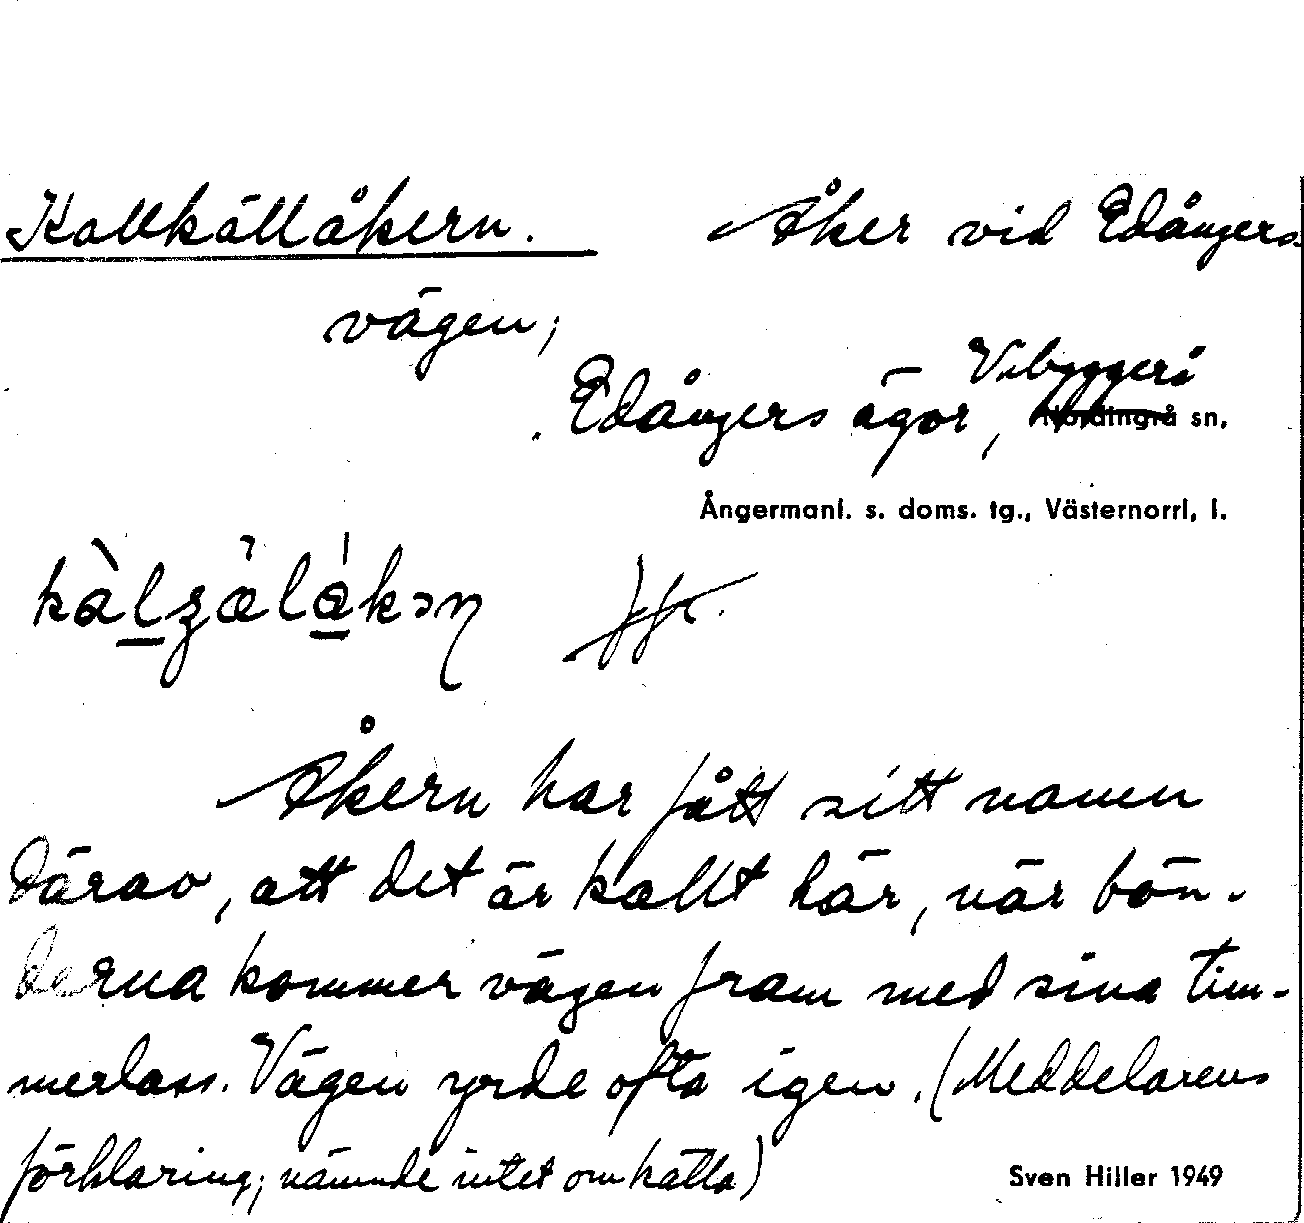 Kallkällåkern. Åker vid Edångers-
vägen;
Vibyggerå
Edångers ägor, Nordingrå sn,
Ångermanl. s. doms. tg., Västernorrl, l.
Åkern har fått sitt namn
därav, att det är kallt här, när bön-
derna kommer vägen fram med sina tim-
merlass. Vägen yrde ofta igen. (Meddelarens
förklaring; nämnde intet om källa)
Sven Hiller 1949